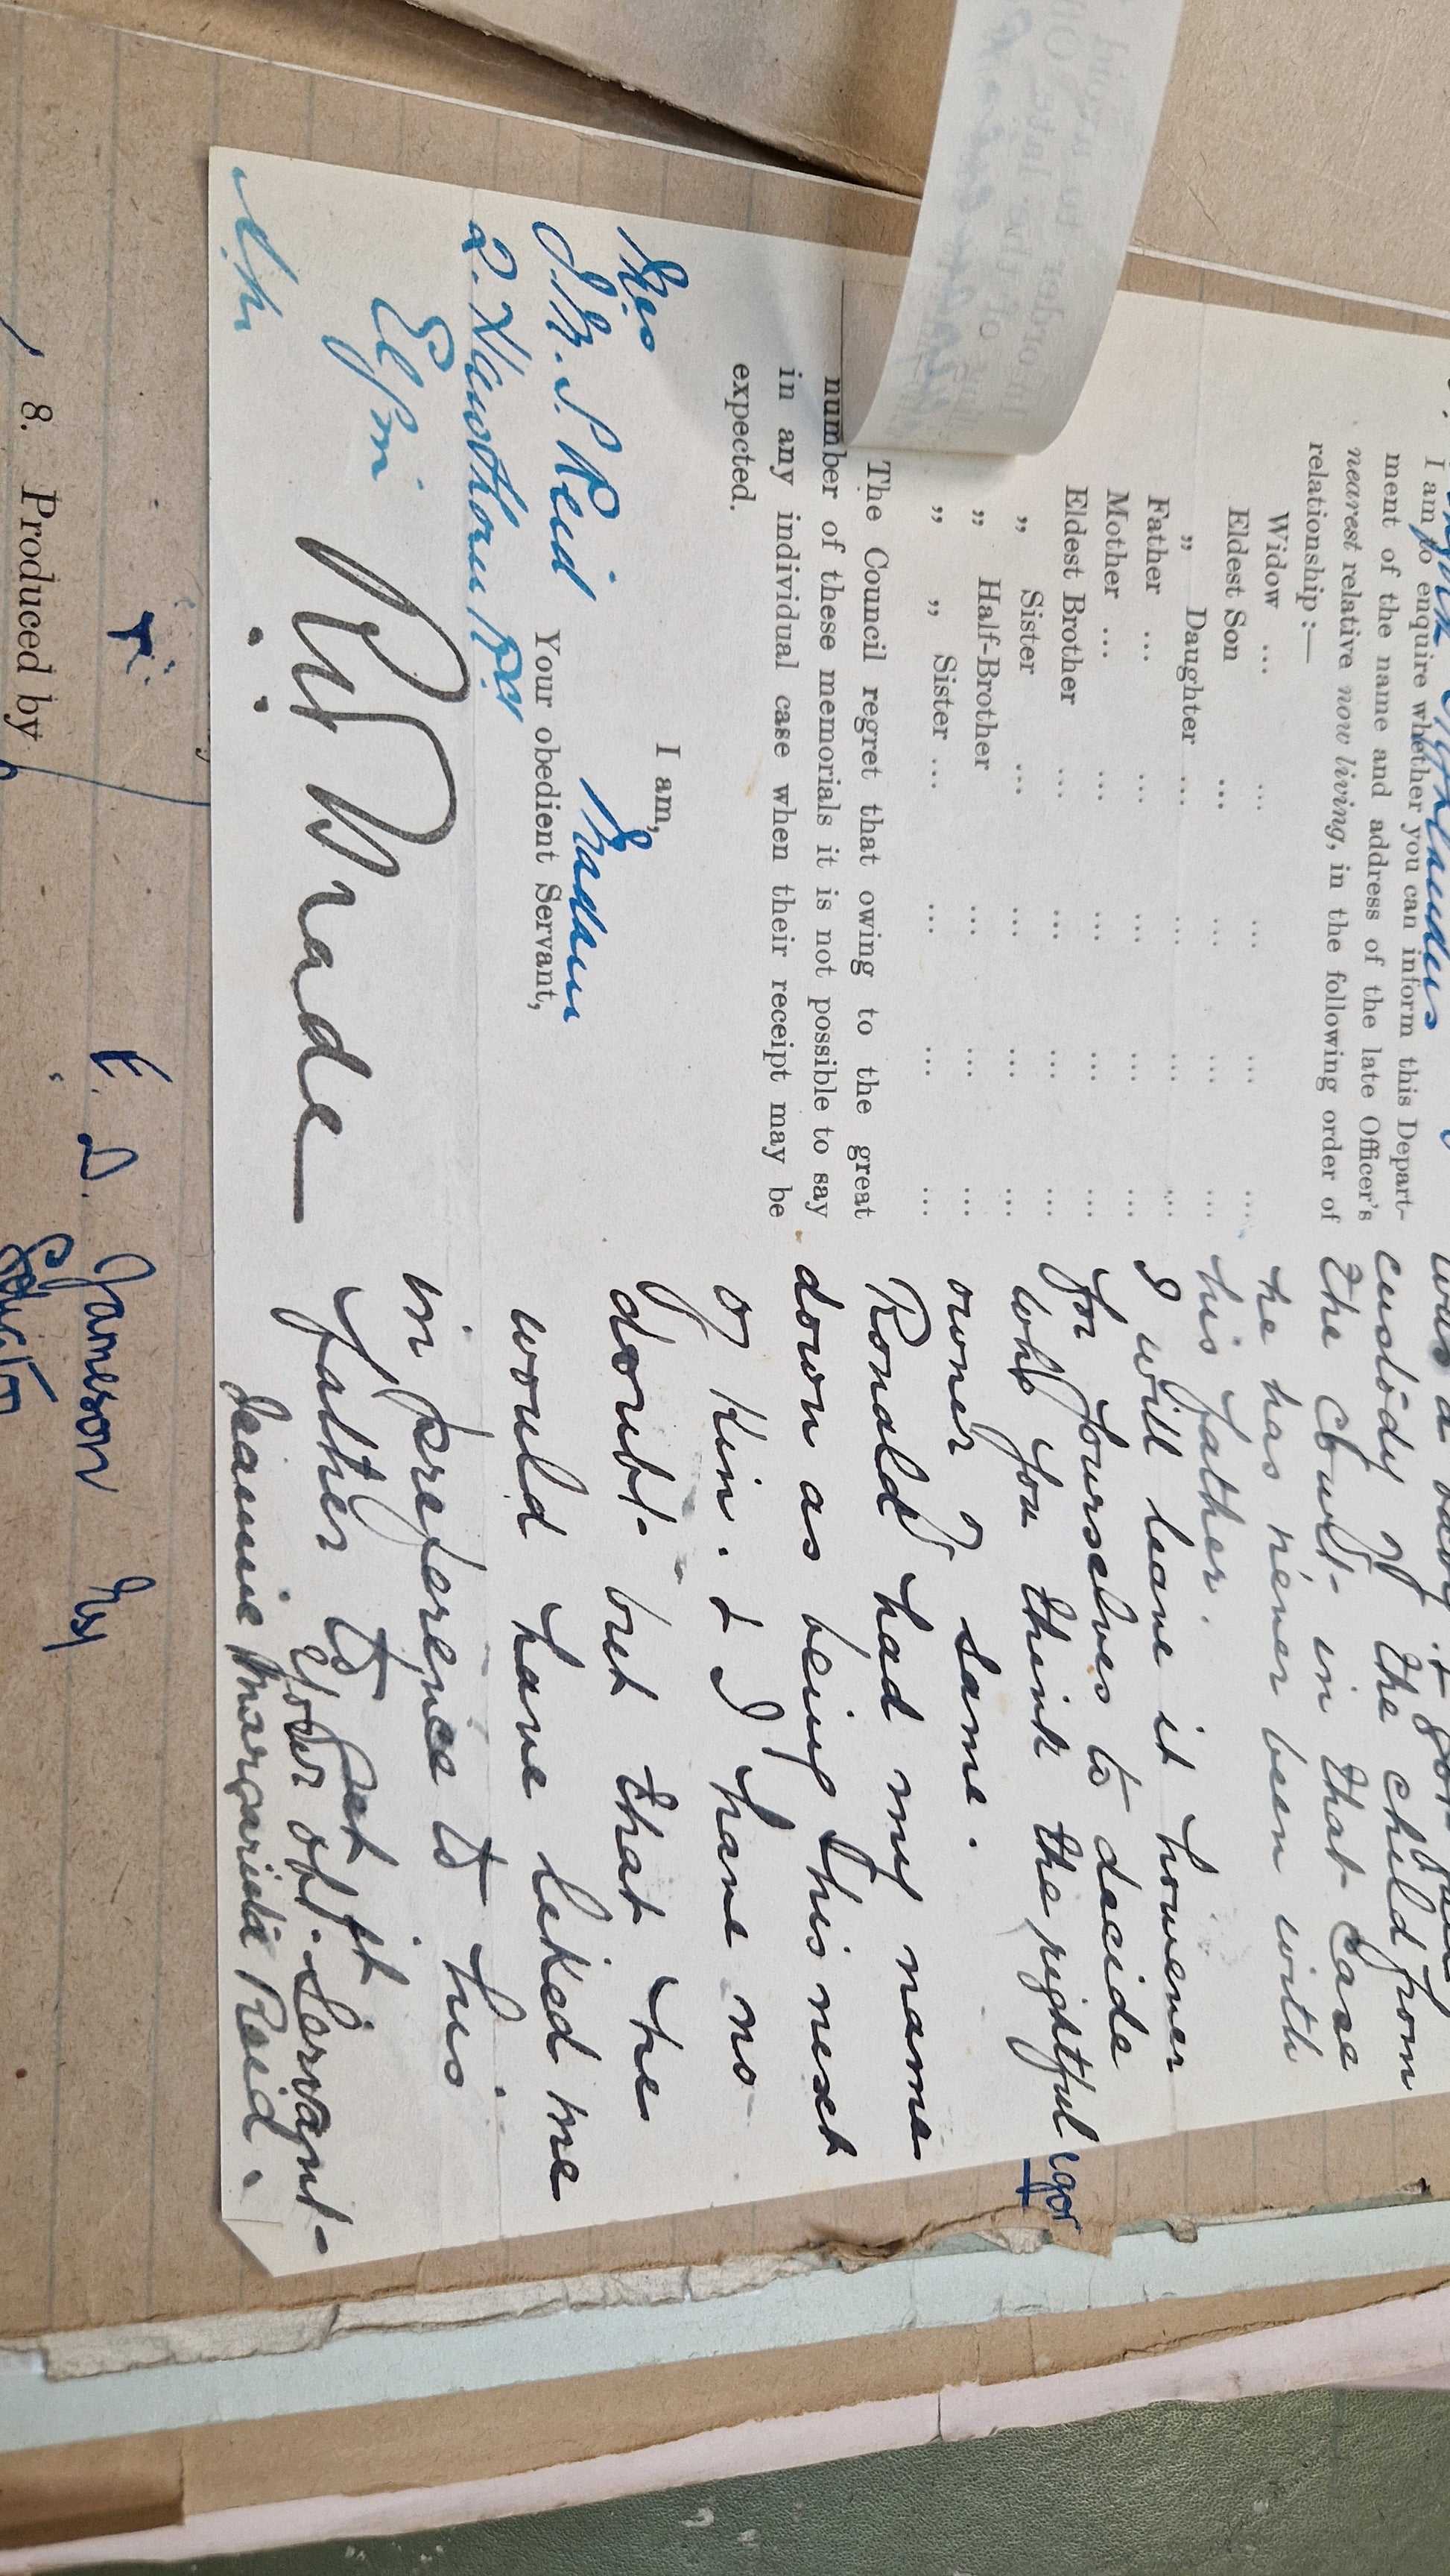 I am to enquire whether you can inform this Depart-
ment of the name and address of the late Officer's
nearest relative now living, in the following order of
relationship :—
Widow ... ... ... ... ...
Eldest Son ... ... ... ...
„ Daughter ... ... ... ...
Father ... ... ... ... ...
Mother ... ... ... ... ...
Eldest Brother ... ... ... ...
„ Sister ... ... ... ...
„ Half-Brother ... ... ...
„ „ Sister ... ... ... ...
The Council regret that owing to the great
number of these memorials it is not possible to say
in any individual case when their receipt may be
expected.
I am,
Madam
Your obedient Servant,
Mrs
J. M. S. Reid
2. Hawthorn Rd
Elgin
custody of the child from
the court in that case
he has never been with
his father.
I will leave it however
for yourselves to decide
who you think the rightful
owner of same.
Ronald had my name
down as being his next
of kin. & I have no
doubt but that he
would have liked me
in preference to his
father to get it
Your obt. Servant
Jeannie Margarida Reid.
E. D. Jameson Esq
8. Produced by